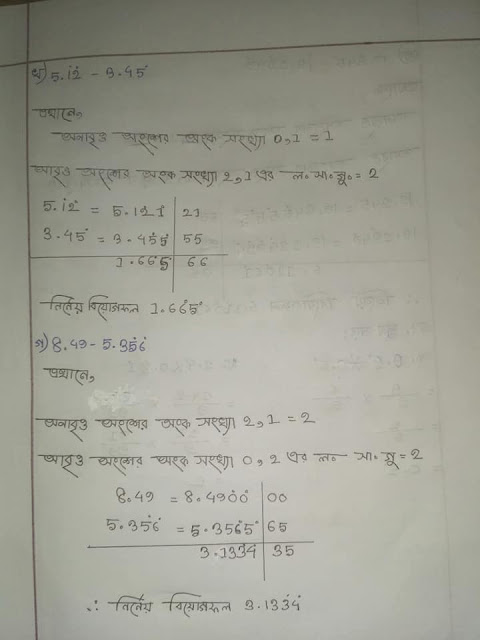 খ) 5.1̇2̇ - 3.45̇
এখানে,
অনাবৃত অংশের অংক সংখ্যা 0,1 = 1
আবৃত অংশের অংক সংখ্যা 2,1 এর ল. সা. গু. = 2
5.1̇2̇ = 5.12̇1̇ | 21
3.45̇ = 3.45̇5̇ | 55
1.66̇5̇ | 66
নির্ণেয় বিয়োগফল 1.66̇5̇
গ) 8.49 - 5.35̇6̇
এখানে,
অনাবৃত অংশের অংক সংখ্যা 2,1 = 2
আবৃত অংশের অংক সংখ্যা 0,2 এর ল. সা. গু = 2
8.49 = 8.490̇0̇ | 00
5.35̇6̇ = 5.356̇5̇ | 65
3.133̇4̇ | 35
∴ নির্ণেয় বিয়োগফল 3.133̇4̇